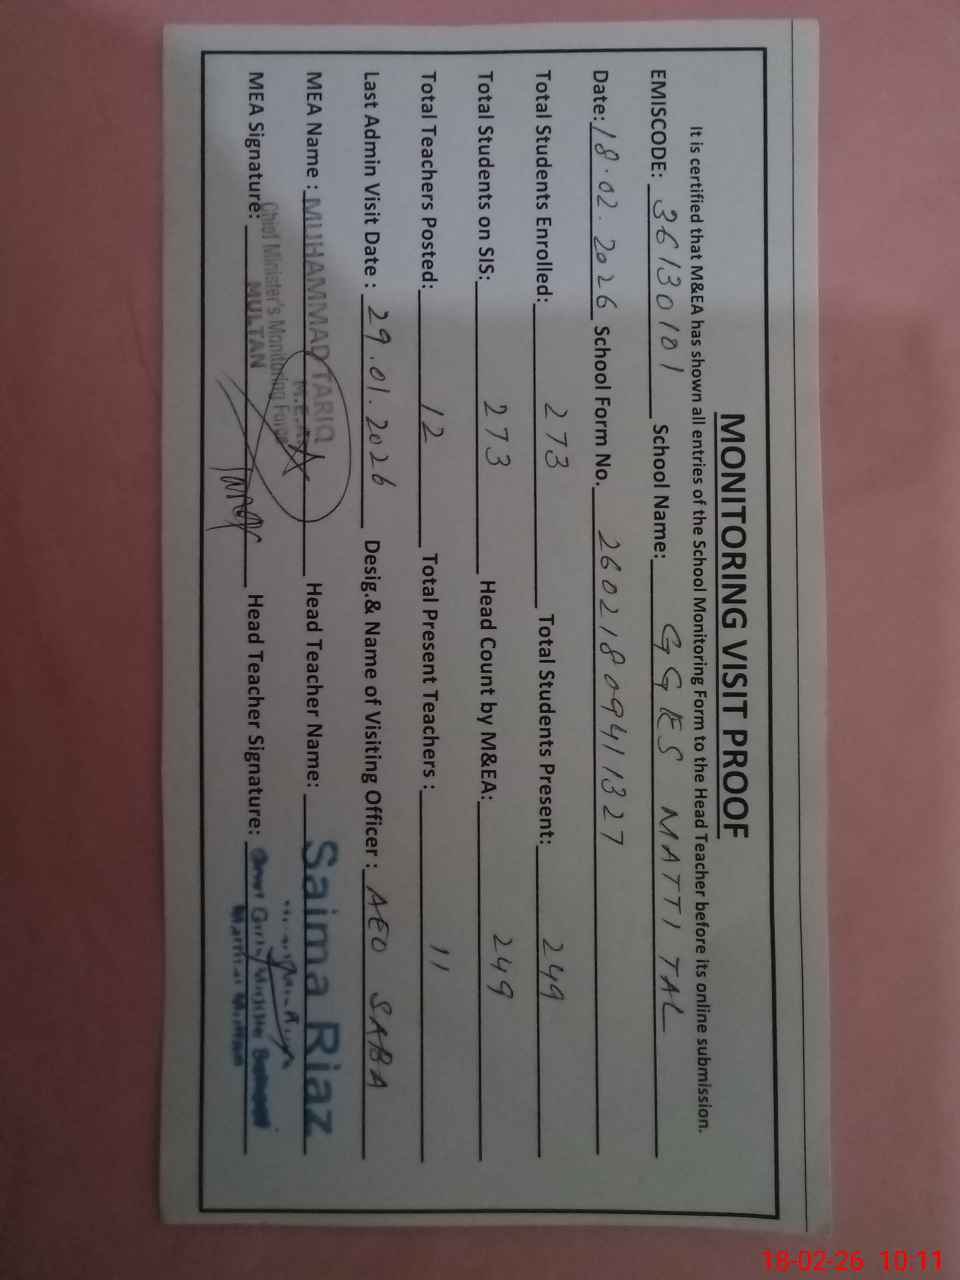 MONITORING VISIT PROOF
It is certified that M&EA has shown all entries of the School Monitoring Form to the Head Teacher before its online submission.
EMISCODE: 36130101 School Name: GGES MATTI TAL
Date: 18.02.2026 School Form No. 26021809411327
Total Students Enrolled: 273 Total Students Present: 249
Total Students on SIS: 273 Head Count by M&EA: 249
Total Teachers Posted: 12 Total Present Teachers : 11
Last Admin Visit Date : 29.01.2026 Desig.& Name of Visiting Officer : AEO SABA
MEA Name : MUHAMMAD TARIQ Head Teacher Name: Saima Riaz
M.E.A
Chief Minister's Monitoring Force
MEA Signature: MULTAN Head Teacher Signature:
18-02-26 10:11